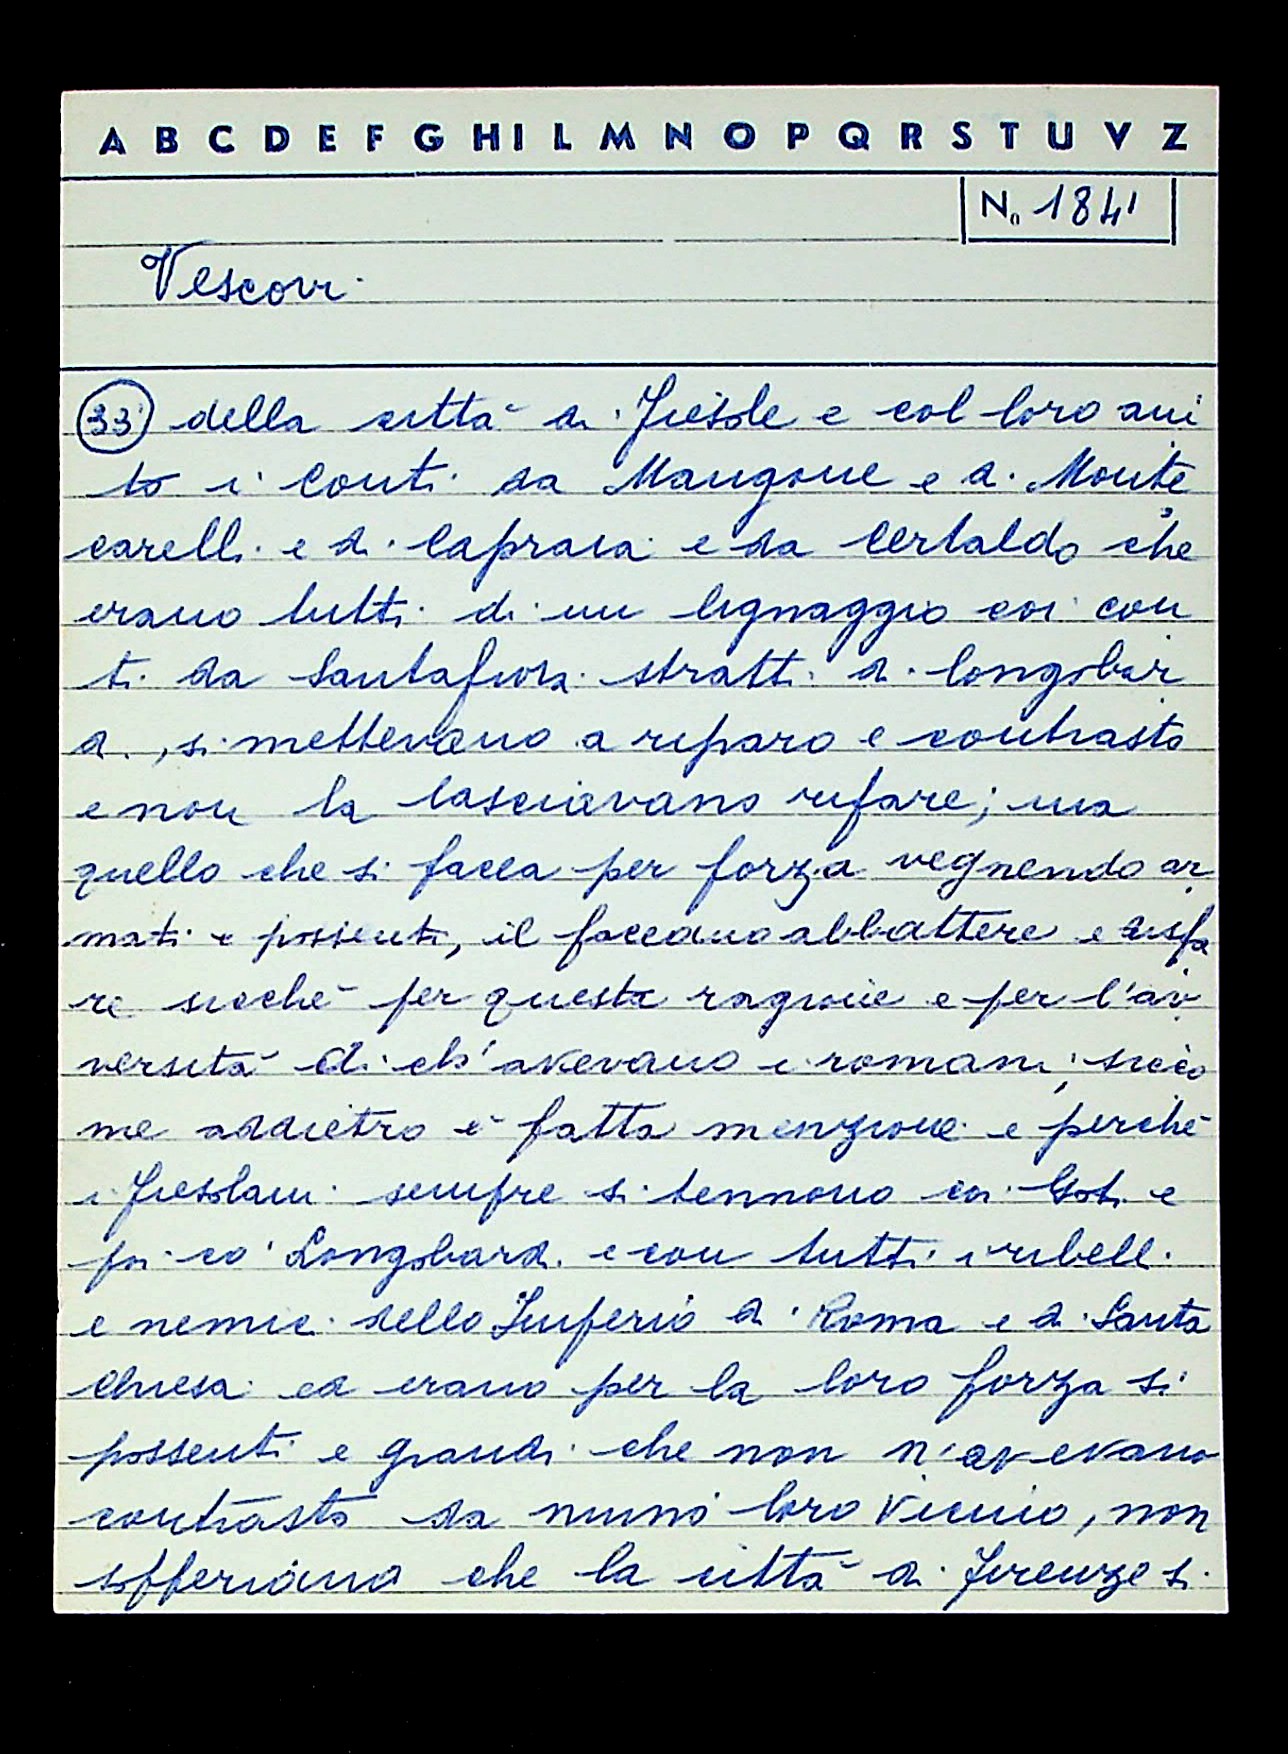 A B C D E F G H I L M N O P Q R S T U V Z
No 1841
Vescovi
33 della città di Fiesole e col loro aui
to i Conti da Mangone e di Monte
carelli e di Capraia e da Certaldo che
erano tutti di un lignaggio coi con
ti da Santafiora stratti di longobar
di, si mettevano a riparo e contrasto
e non la lasciavano rifare; ma
quello che si facea per forza vegnendo ar
mati e possenti, il faceano abbattere e disfa
re sicchè per questa ragione e per l'av
versità di ch'avevano i romani, sicco
me addietro è fatta menzione e perchè
i Fiesolani sempre si tennono coi Goti e
poi co' Longobardi e con tutti i ribelli
e nemici dello Imperio di Roma e di Santa
Chiesa ed erano per la loro forza si
possenti e grandi che non n'avevano
contrasto da nimno loro vicinio, non
sofferiano che la città di Firenze si